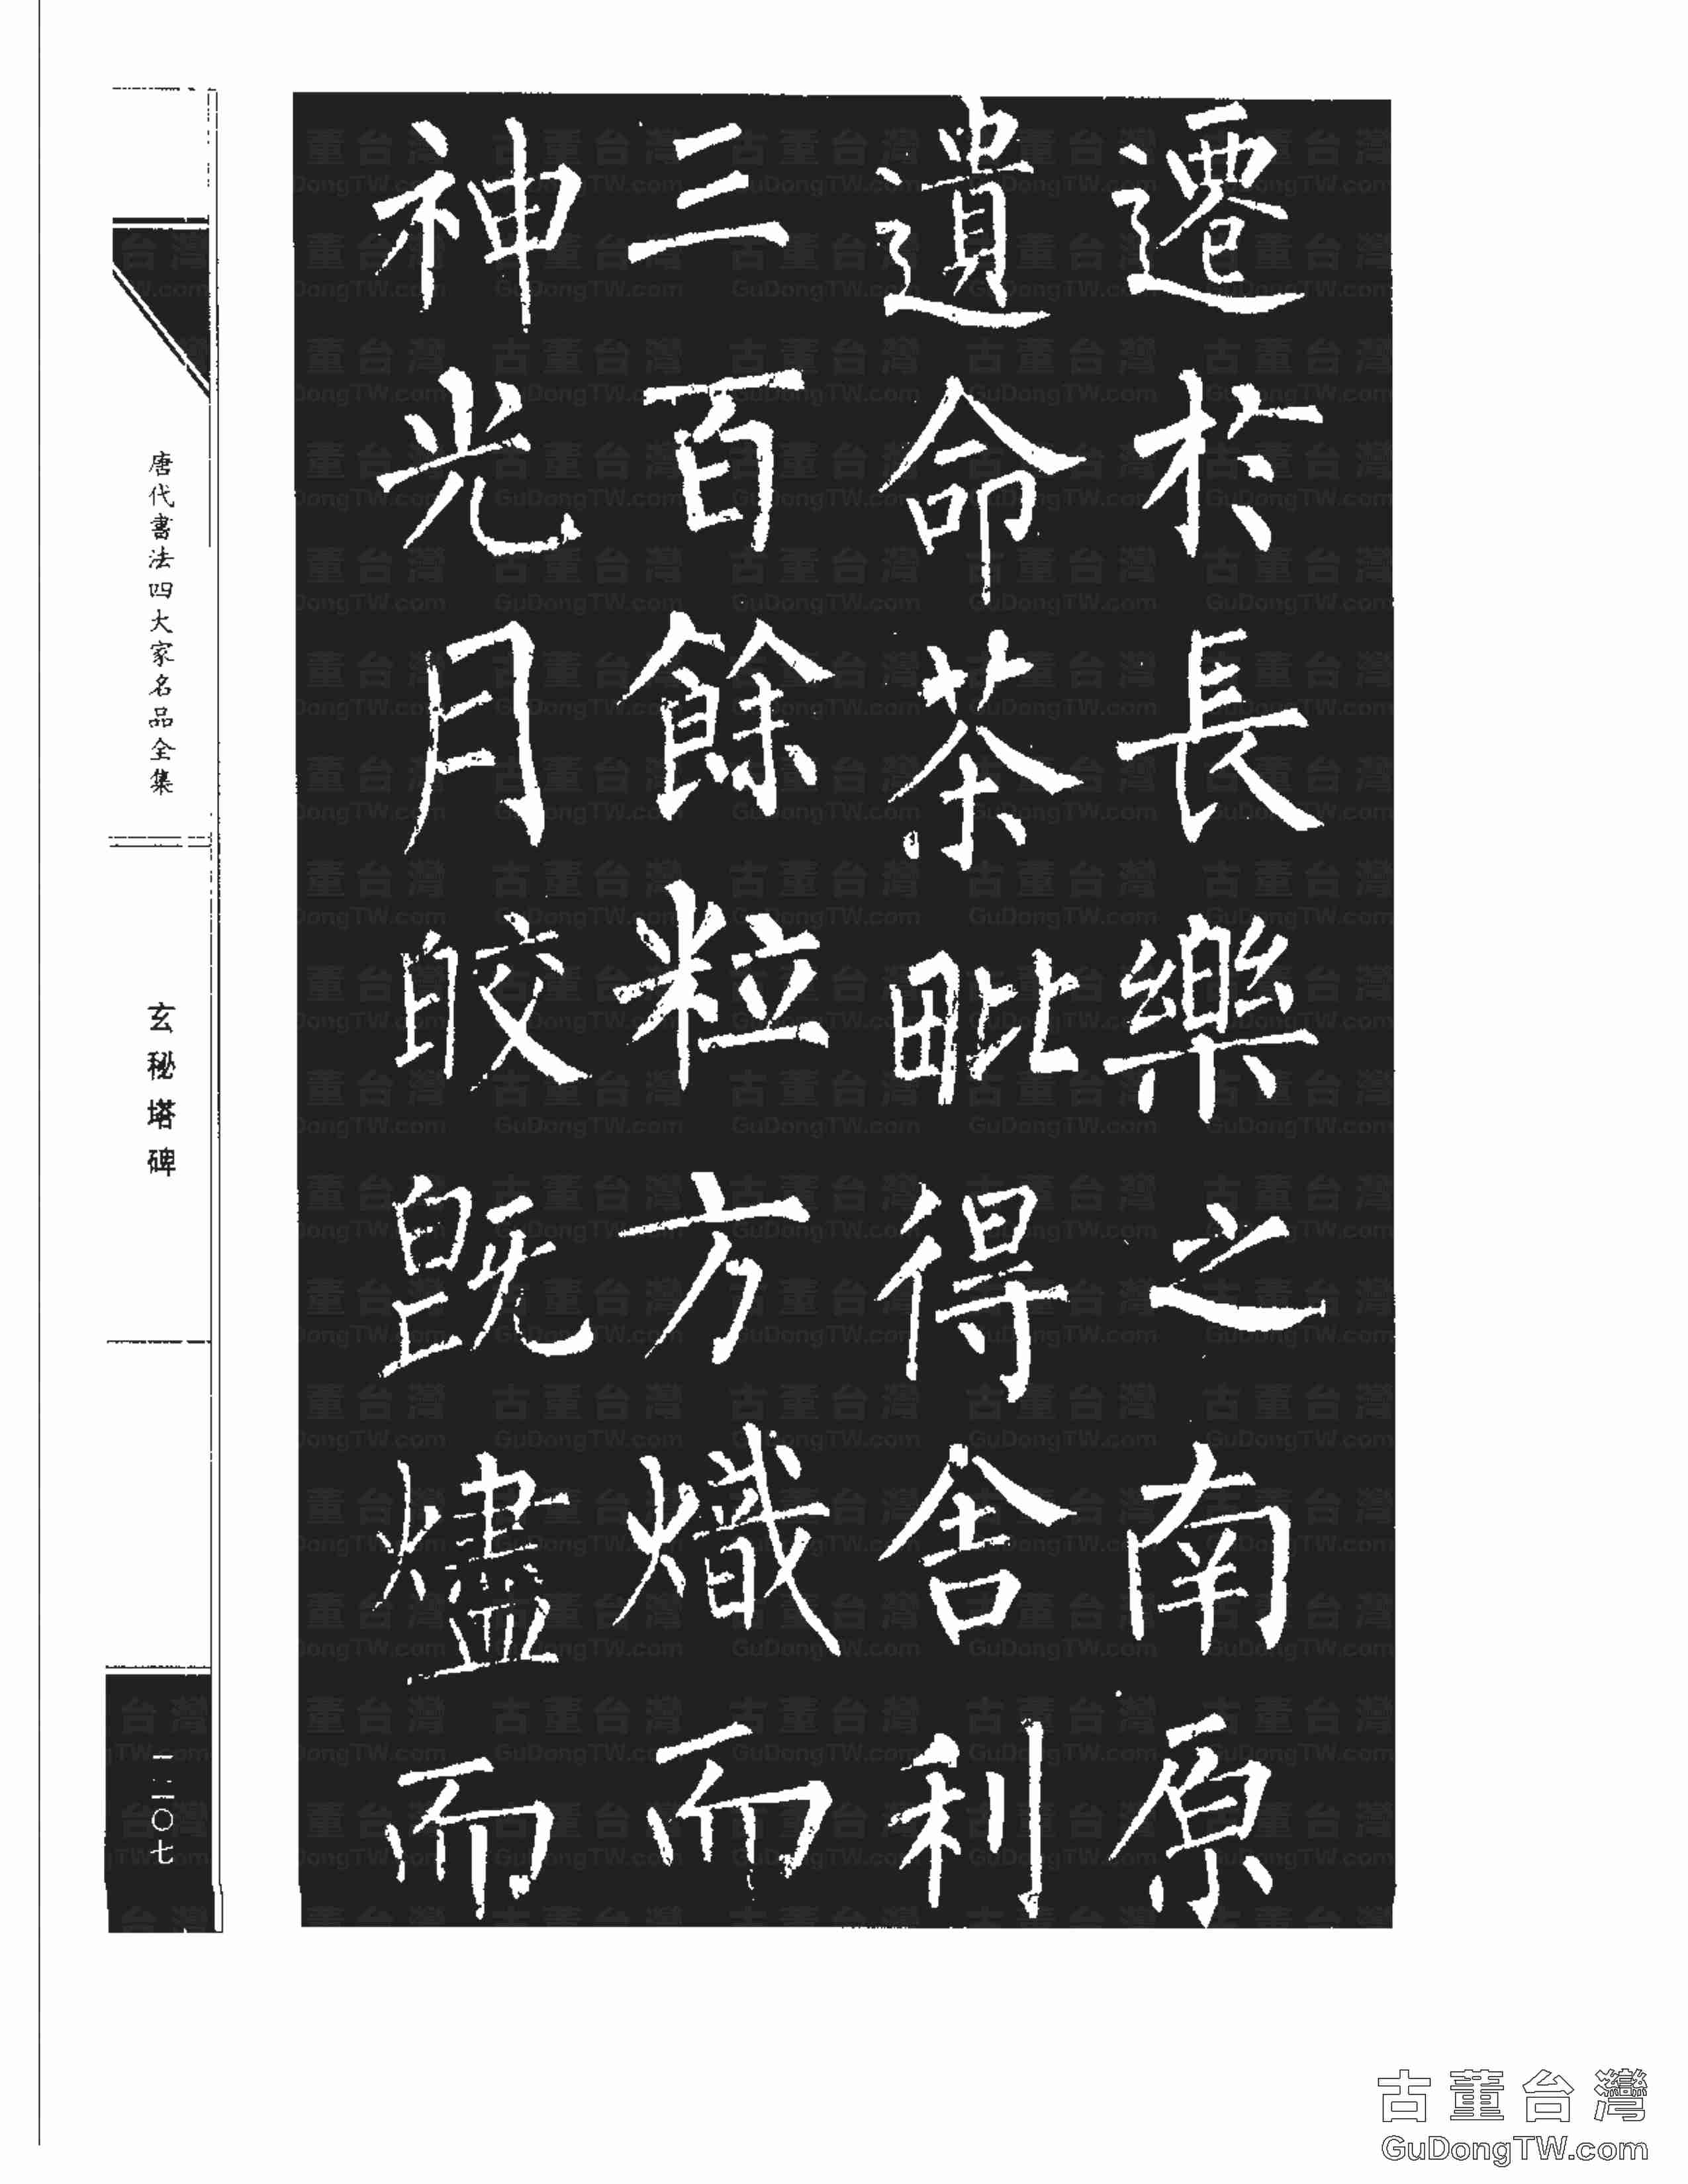 遷於長樂之南原
遺命茶毗得舍利
三百餘粒方熾而
神光月皎既燼而
唐代書法四大家名品全集
玄秘塔碑
一二〇七
古董台灣
GuDongTW.com